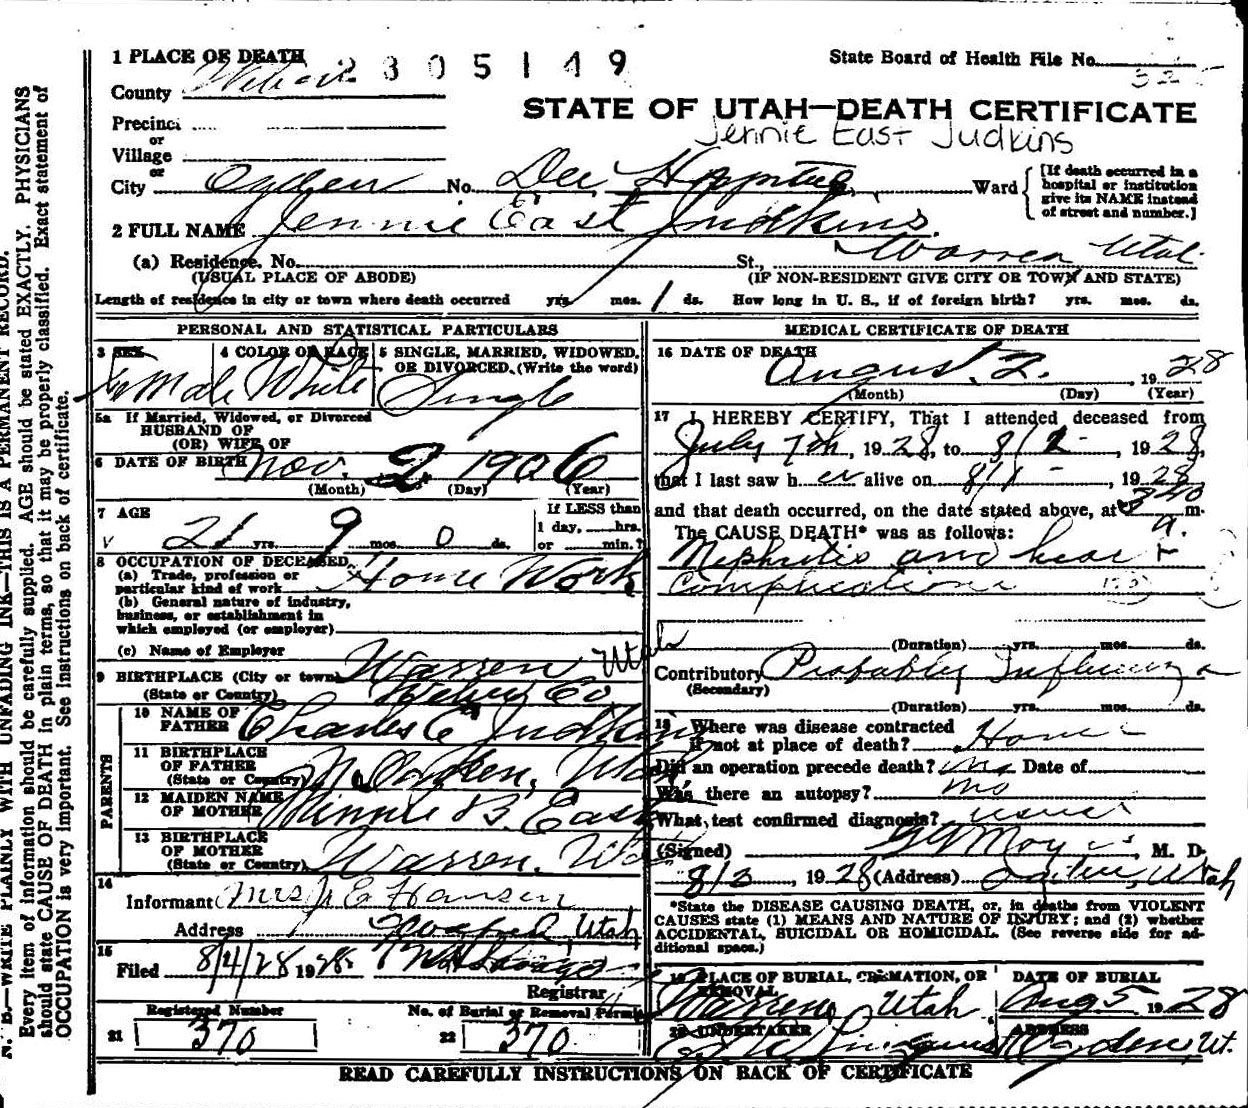 1 PLACE OF DEATH 2305149 State Board of Health File No.
County Weber
STATE OF UTAH—DEATH CERTIFICATE
Precinct
or
Village
Jennie East Judkins
or
City Ogden No. Dee Hospital Ward
[If death occurred in a hospital or institution give its NAME instead of street and number.]
2 FULL NAME Jennie East Judkins
(a) Residence. No. St., Warren Utah
(USUAL PLACE OF ABODE) (IF NON-RESIDENT GIVE CITY OR TOWN AND STATE)
Length of residence in city or town where death occurred yrs. mos. 1 ds. How long in U. S., if of foreign birth? yrs. mos. ds.
PERSONAL AND STATISTICAL PARTICULARS
3 SEX Female
4 COLOR OR RACE White
5 SINGLE, MARRIED, WIDOWED, OR DIVORCED. (Write the word) Single
5a If Married, Widowed, or Divorced
HUSBAND OF
(OR) WIFE OF
6 DATE OF BIRTH Nov. 2 1906
(Month) (Day) (Year)
7 AGE 21 yrs. 9 mos. 0 ds.
If LESS than
1 day, hrs.
or min.?
8 OCCUPATION OF DECEASED
(a) Trade, profession or
particular kind of work Home Work
(b) General nature of industry,
business, or establishment in
which employed (or employer)
(c) Name of Employer
9 BIRTHPLACE (City or town) Warren Utah
(State or Country) Weber Co
PARENTS
10 NAME OF
FATHER Charles C Judkins
11 BIRTHPLACE
OF FATHER
(State or Country) N. Ogden, Utah
12 MAIDEN NAME
OF MOTHER Minnie B. East
13 BIRTHPLACE
OF MOTHER
(State or Country) Warren,
14
Informant Mrs J E Hansen
Address Utah
15
Filed 8/4/28 1928
Registrar
Registered Number
21 370
No. of Burial or Removal Permit
22 370
MEDICAL CERTIFICATE OF DEATH
16 DATE OF DEATH August 2. 1928
(Month) (Day) (Year)
17 I HEREBY CERTIFY, That I attended deceased from
July 7th, 1928, to 8/2, 1928,
that I last saw her alive on 8/1, 1928
and that death occurred, on the date stated above, at 340 a. m.
The CAUSE DEATH* was as follows:
Nephritis and heart
Complications
(Duration) yrs. mos. ds.
Contributory Probably Influenza
(Secondary)
(Duration) yrs. mos. ds.
18 Where was disease contracted
if not at place of death? Home
Did an operation precede death? no Date of
Was there an autopsy? no
What test confirmed diagnosis? usual
(Signed) M. D.
8/3, 1928 (Address) Ogden, Utah
*State the DISEASE CAUSING DEATH, or, in deaths from VIOLENT
CAUSES state (1) MEANS AND NATURE OF INJURY; and (2) whether
ACCIDENTAL, SUICIDAL OR HOMICIDAL. (See reverse side for ad-
ditional space.)
19 PLACE OF BURIAL, CREMATION, OR REMOVAL Warren, Utah
DATE OF BURIAL Aug 5 1928
20 UNDERTAKER
ADDRESS Ogden, Ut.
READ CAREFULLY INSTRUCTIONS ON BACK OF CERTIFICATE
N. B.—WRITE PLAINLY WITH UNFADING INK—THIS IS A PERMANENT RECORD.
Every item of information should be carefully supplied. AGE should be stated EXACTLY. PHYSICIANS
should state CAUSE OF DEATH in plain terms, so that it may be properly classified. Exact statement of
OCCUPATION is very important. See instructions on back of certificate.